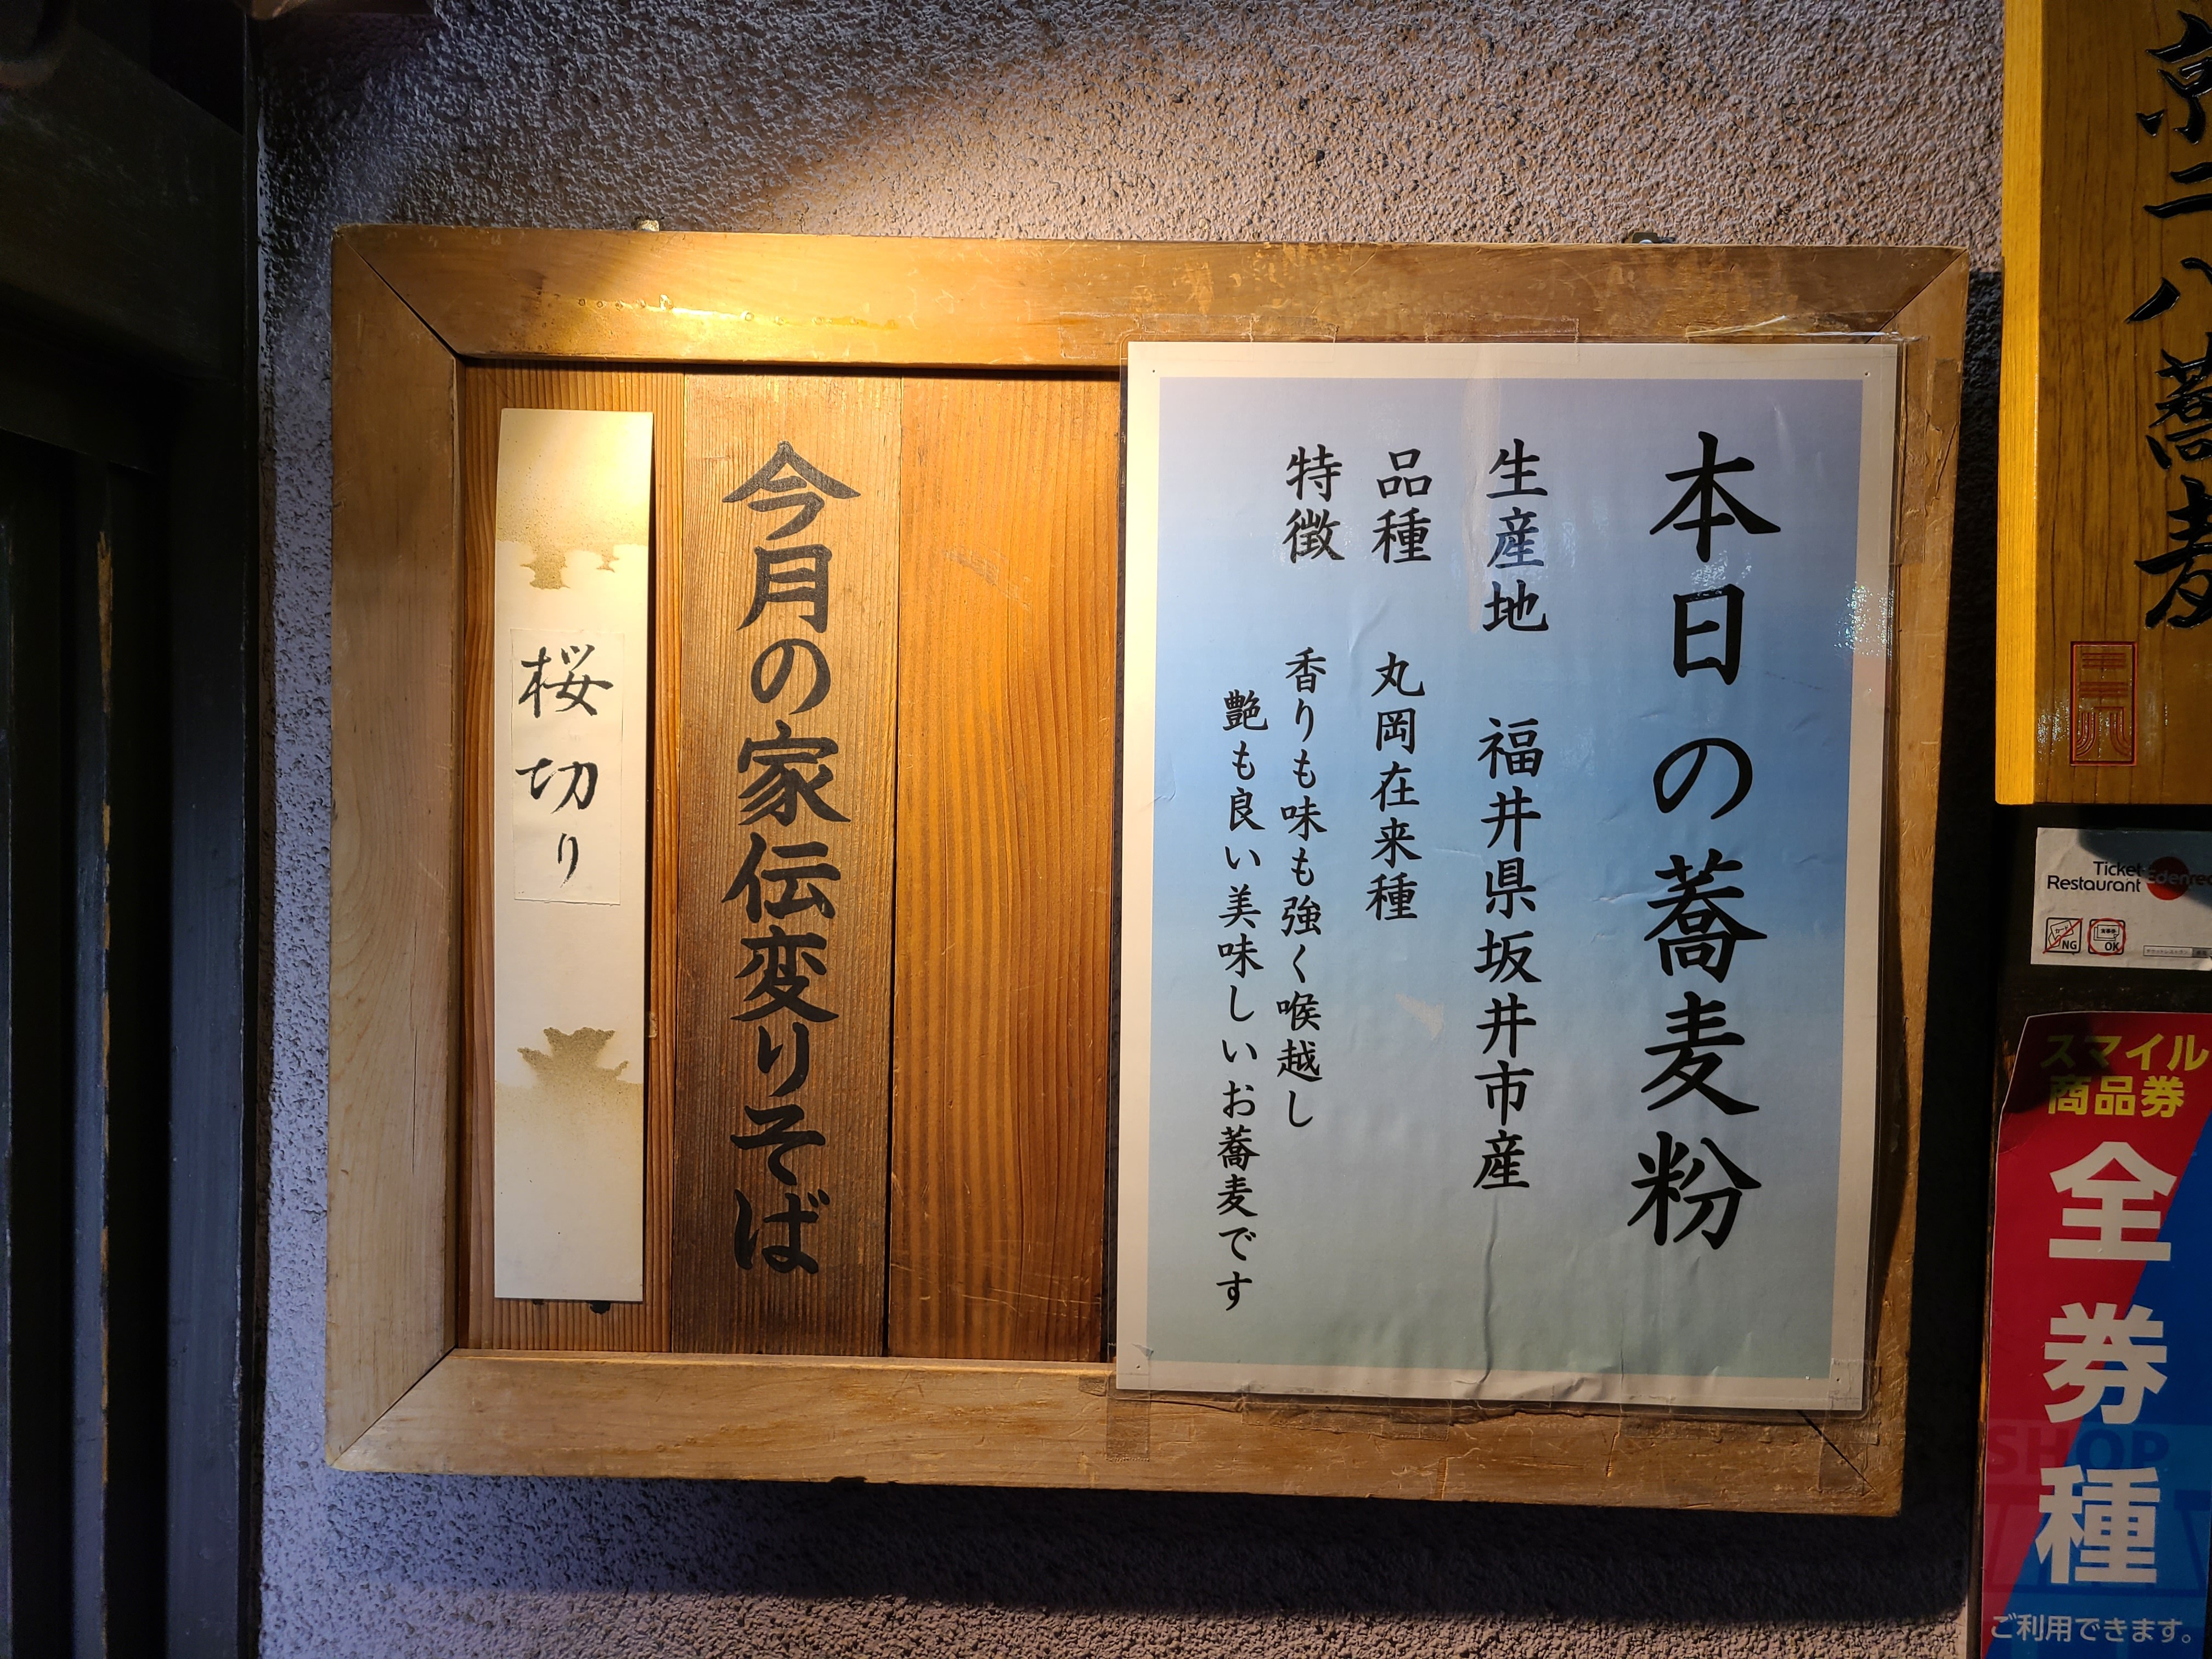 本日の蕎麦粉
生産地 福井県坂井市産
品種 丸岡在来種
特徴 香りも味も強く喉越し
艶も良い美味しいお蕎麦です
今月の家伝変りそば
桜切り
二八蕎麦
Ticket
Restaurant Edenred
NG
OK
スマイル
商品券
全券種
SHOP
ご利用できます。